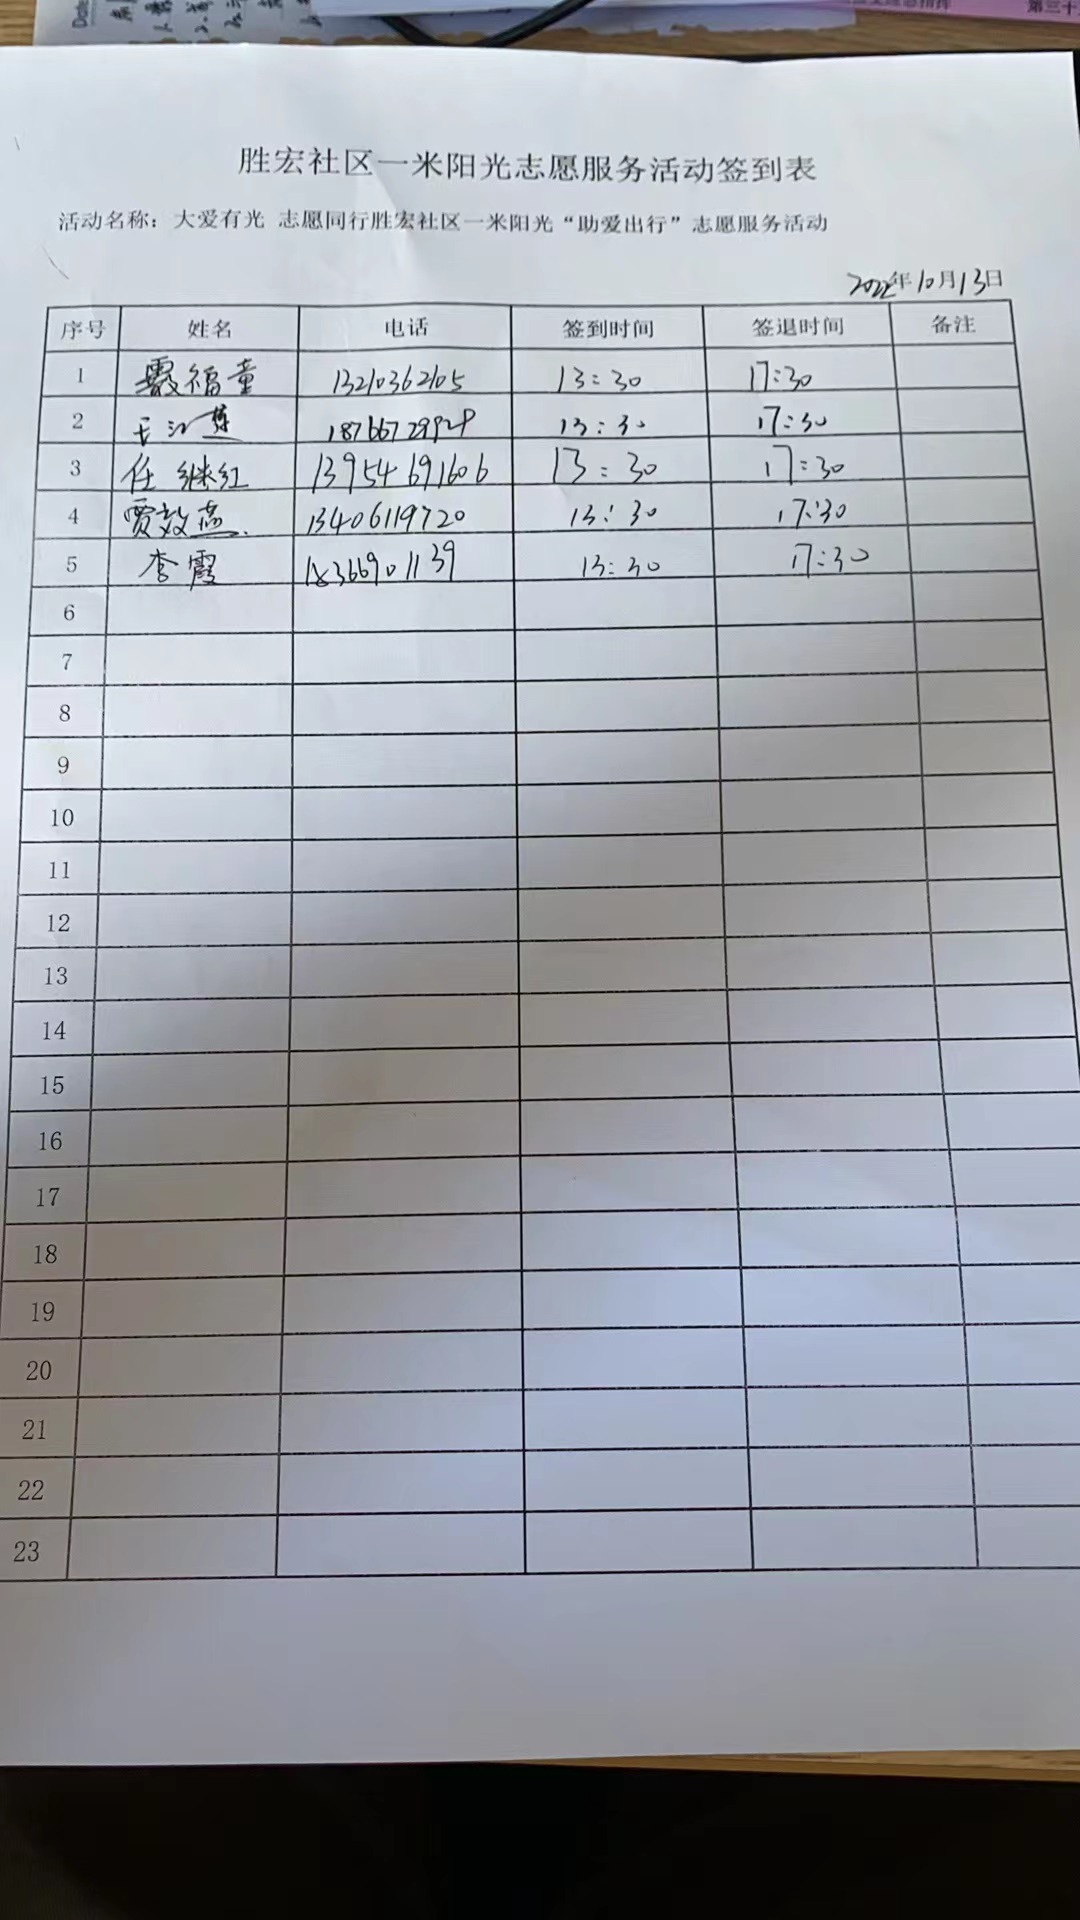 胜宏社区一米阳光志愿服务活动签到表
活动名称：大爱有光 志愿同行胜宏社区一米阳光“助爱出行”志愿服务活动
2022年10月13日
序号 姓名 电话 签到时间 签退时间 备注
1 福童 13210362105 13:30 17:30
2 王江莲 13:30 17:30
3 任继红 13954691606 13:30 17:30
4 贾效燕 13406119720 13:30 17:30
5 李霞 18366901139 13:30 17:30
6
7
8
9
10
11
12
13
14
15
16
17
18
19
20
21
22
23